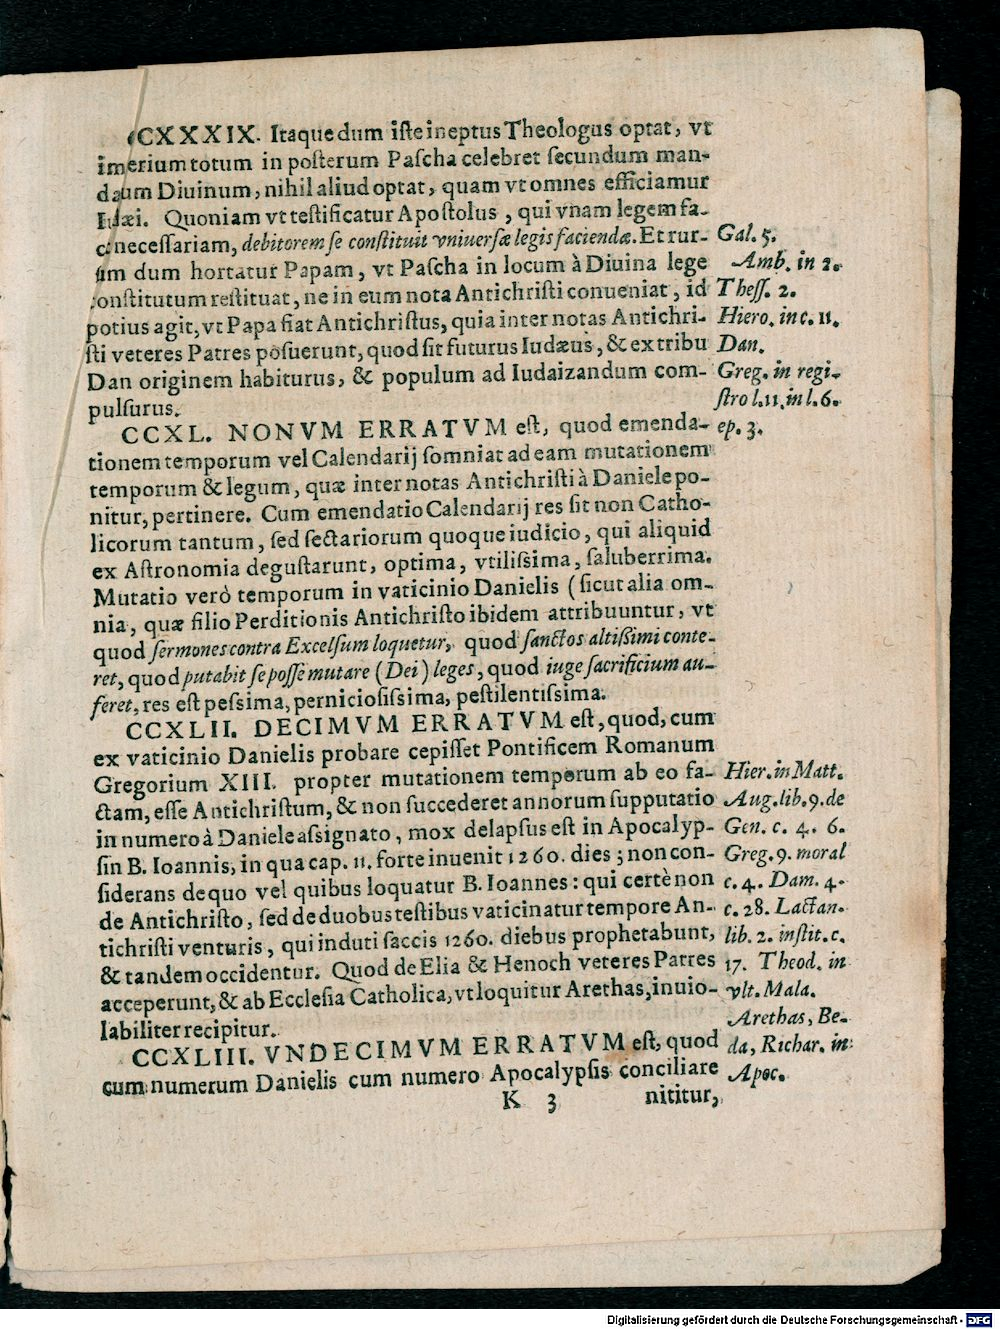 CXXXIX. Itaque dum iſte ineptus Theologus optat, vt
imerium totum in poſterum Paſcha celebret ſecundum man-
daum Diuinum, nihil aliud optat, quam vt omnes efficiamur
Iudæi. Quoniam vt teſtificatur Apoſtolus, qui vnam legem fa-
c neceſſariam, debitorem ſe conſtituit vniuerſæ legis faciendæ. Et rur-
ſım dum hortatur Papam, vt Paſcha in locum à Diuina lege
conſtitutum reſtituat, ne in eum nota Antichriſti conueniat, id
potius agit, vt Papa fiat Antichriſtus, quia inter notas Antichri-
ſti veteres Patres poſuerunt, quod ſit futurus Iudæus, & ex tribu
Dan originem habiturus, & populum ad Iudaizandum com-
pulſurus.
Gal. 5.
Amb. in 2.
Theſſ. 2.
Hiero. in c. 11.
Dan.
Greg. in regi-
ſtro l. 11. in l. 6.
ep. 3.
CCXL. NONVM ERRATVM eſt, quod emenda-
tionem temporum vel Calendarij ſomniat ad eam mutationem
temporum & legum, quæ inter notas Antichriſti à Daniele po-
nitur, pertinere. Cum emendatio Calendarij res ſit non Catho-
licorum tantum, ſed ſectariorum quoque iudicio, qui aliquid
ex Aſtronomia deguſtarunt, optima, vtiliſsima, ſaluberrima.
Mutatio verò temporum in vaticinio Danielis (ſicut alia om-
nia, quæ filio Perditionis Antichriſto ibidem attribuuntur, vt
quod ſermones contra Excelſum loquetur, quod ſanctos altißimi conte-
ret, quod putabit ſe poſſe mutare (Dei) leges, quod iuge ſacrificium au-
feret, res eſt peſsima, pernicioſiſsima, peſtilentiſsima.
CCXLII. DECIMVM ERRATVM eſt, quod, cum
ex vaticinio Danielis probare cepiſſet Pontificem Romanum
Gregorium XIII. propter mutationem temporum ab eo fa-
ctam, eſſe Antichriſtum, & non ſuccederet annorum ſupputatio
in numero à Daniele aſsignato, mox delapſus eſt in Apocalyp-
ſin B. Ioannis, in qua cap. 11. forte inuenit 1260. dies; non con-
ſiderans de quo vel quibus loquatur B. Ioannes: qui certè non
de Antichriſto, ſed de duobus teſtibus vaticinatur tempore An-
tichriſti venturis, qui induti ſaccis 1260. diebus prophetabunt,
& tandem occidentur. Quod de Elia & Henoch veteres Patres
acceperunt, & ab Eccleſia Catholica, vt loquitur Arethas, inuio-
labiliter recipitur.
Hier. in Matt.
Aug. lib. 9. de
Gen. c. 4. 6.
Greg. 9. moral
c. 4. Dam. 4.
c. 28. Lactan.
lib. 2. inſtit. c.
17. Theod. in
vlt. Mala.
Arethas, Be-
da, Richar. in
Apoc.
CCXLIII. VNDECIMVM ERRATVM eſt, quod
cum numerum Danielis cum numero Apocalypſis conciliare
K 3 nititur,
Digitalisierung gefördert durch die Deutsche Forschungsgemeinschaft - DFG